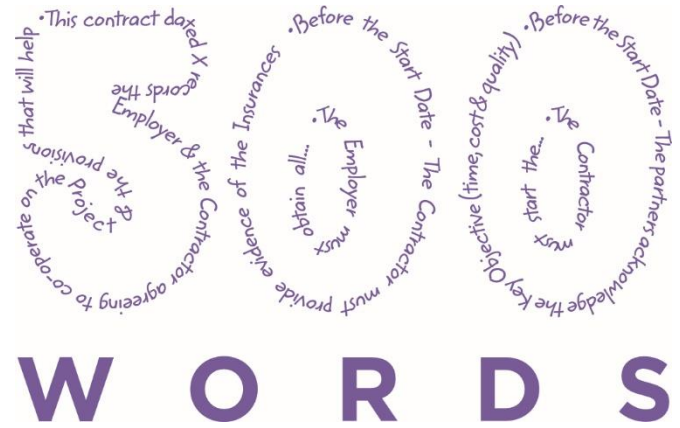 •This contract dated X records the Employer & the Contractor agreeing to co-operate on the Project & the provisions that will help
•Before the Start Date - The Contractor must provide evidence of the Insurances
•The Employer must obtain all...
•Before the Start Date - The partners acknowledge the Key Objective (time, cost & quality)
•The Contractor must start the...
WORDS